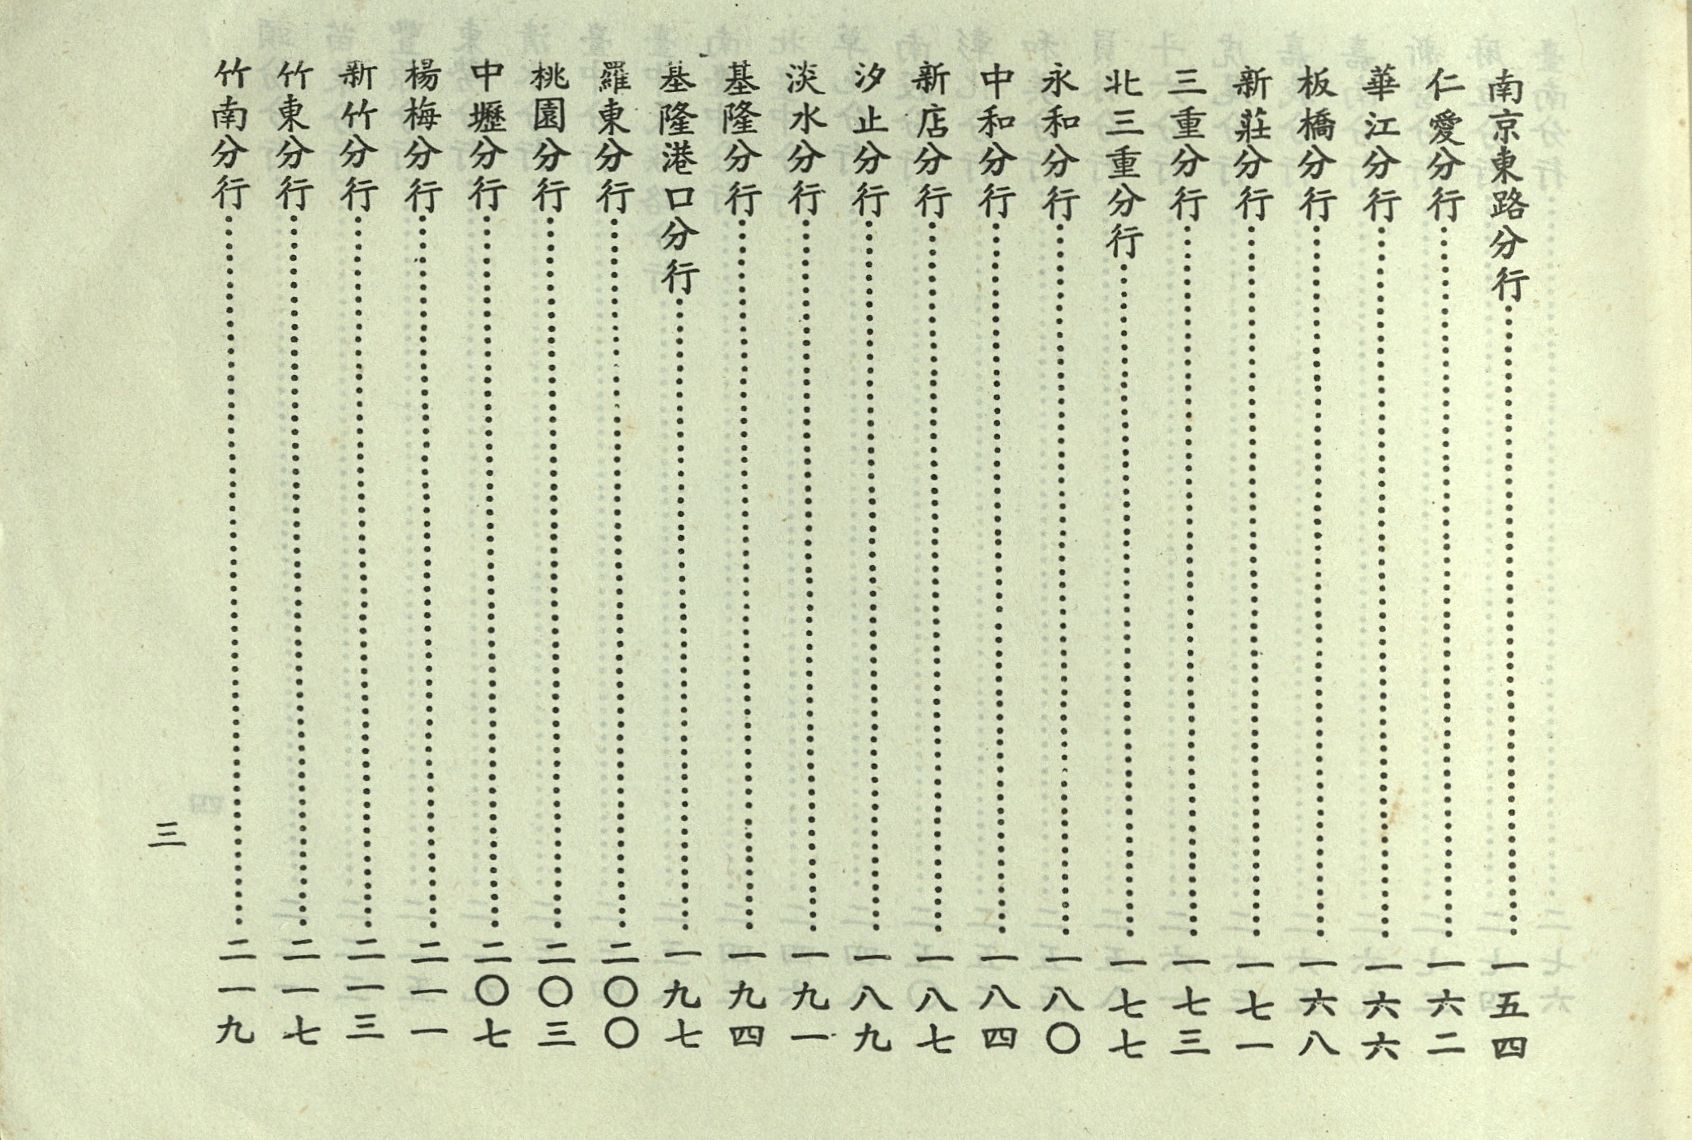 南京東路分行……一五四
仁愛分行……一六二
華江分行……一六六
板橋分行……一六八
新莊分行……一七一
三重分行……一七三
北三重分行……一七七
永和分行……一八〇
中和分行……一八四
新店分行……一八七
汐止分行……一八九
淡水分行……一九一
基隆分行……一九四
基隆港口分行……一九七
羅東分行……二〇〇
桃園分行……二〇三
中壢分行……二〇七
楊梅分行……二一一
新竹分行……二一三
竹東分行……二一七
竹南分行……二一九
三